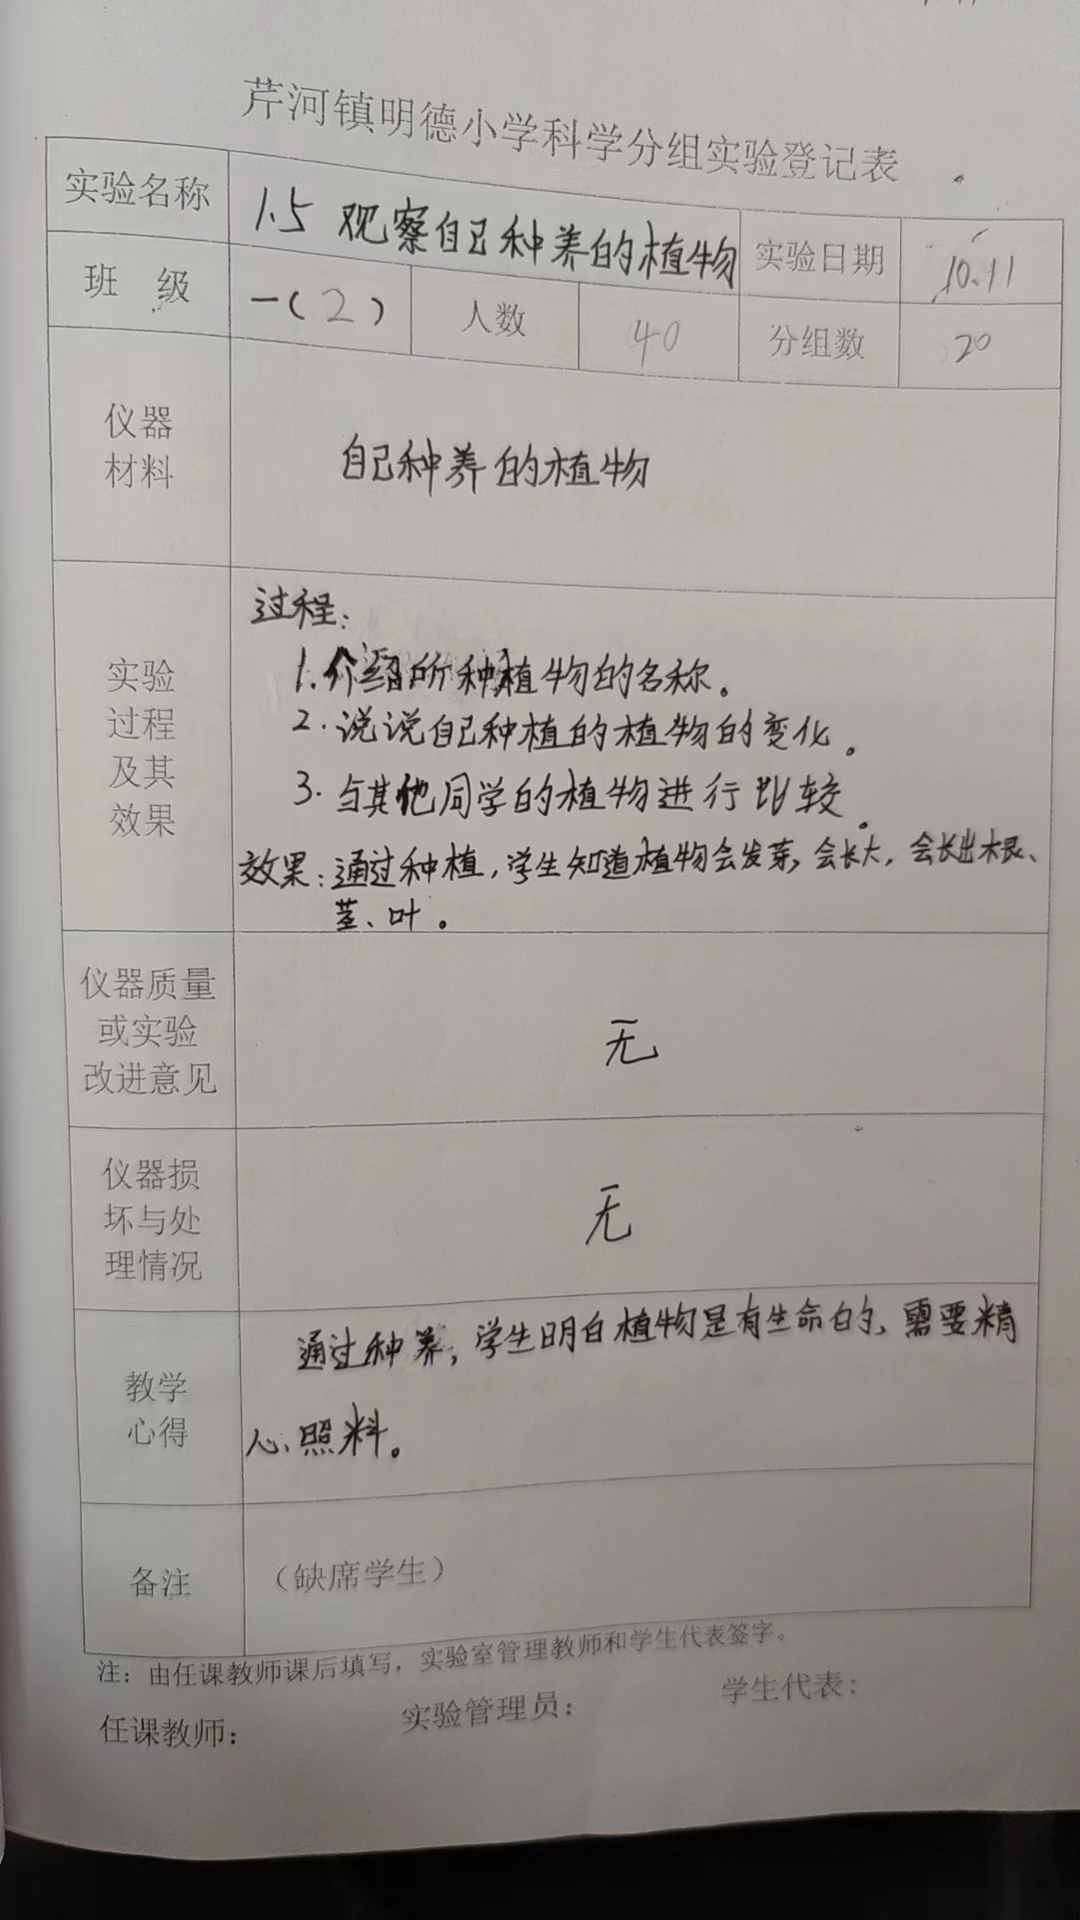 芹河镇明德小学科学分组实验登记表
实验名称 1.5 观察自己种养的植物 实验日期 10.11
班 级 一(2) 人数 40 分组数 20
仪器
材料
自己种养的植物
实验
过程
及其
效果
过程:
1.介绍所种植物的名称。
2.说说自己种植的植物的变化。
3.与其他同学的植物进行比较。
效果:通过种植,学生知道植物会发芽,会长大,会长出根、
茎、叶。
仪器质量
或实验
改进意见
无
仪器损
坏与处
理情况
无
教学
心得
通过种养,学生明白植物是有生命的、需要精
心照料。
备注 (缺席学生)
注:由任课教师课后填写,实验室管理教师和学生代表签字。
任课教师: 实验管理员: 学生代表: